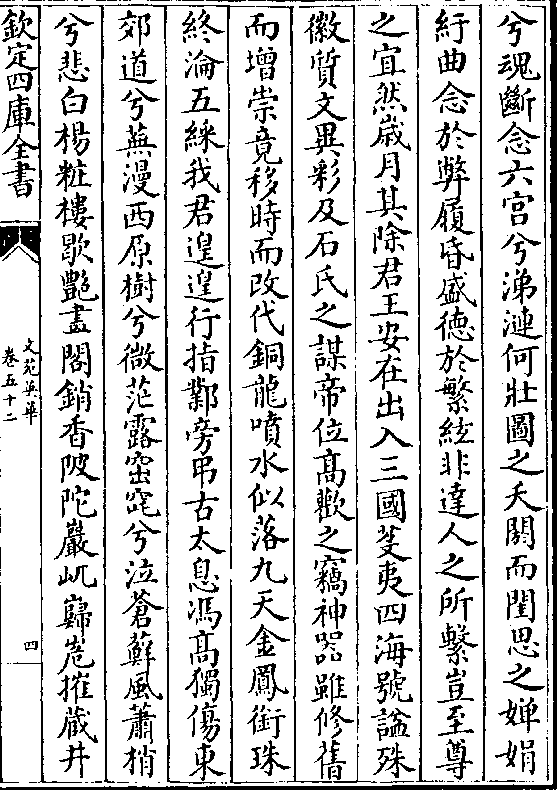 兮魂斷念六宫兮涕漣何壯圖之夭閼而閨思之嬋娟
紆曲念於弊履昏盛徳於繁絃非達人之所繫豈至尊
之宜然歳月其除君王安在出入三國芟夷四海號諡殊
徽質文異彩及石氏之謀帝位髙歡之竊神器雖修舊
而增崇竟移時而改代銅龍噴水似落九天金鳳銜珠
終淪五綵我君遑遑行指鄴旁弔古太息馮髙獨傷東
郊道兮蕪漫西原樹兮微茫露窋窀兮泣蒼蘚風蕭梢
兮悲白楊粧樓歇艶畫閣銷香陂陀巖屼巋嵬摧蔵井
欽定四庫全書
文苑英華
卷五十二
四